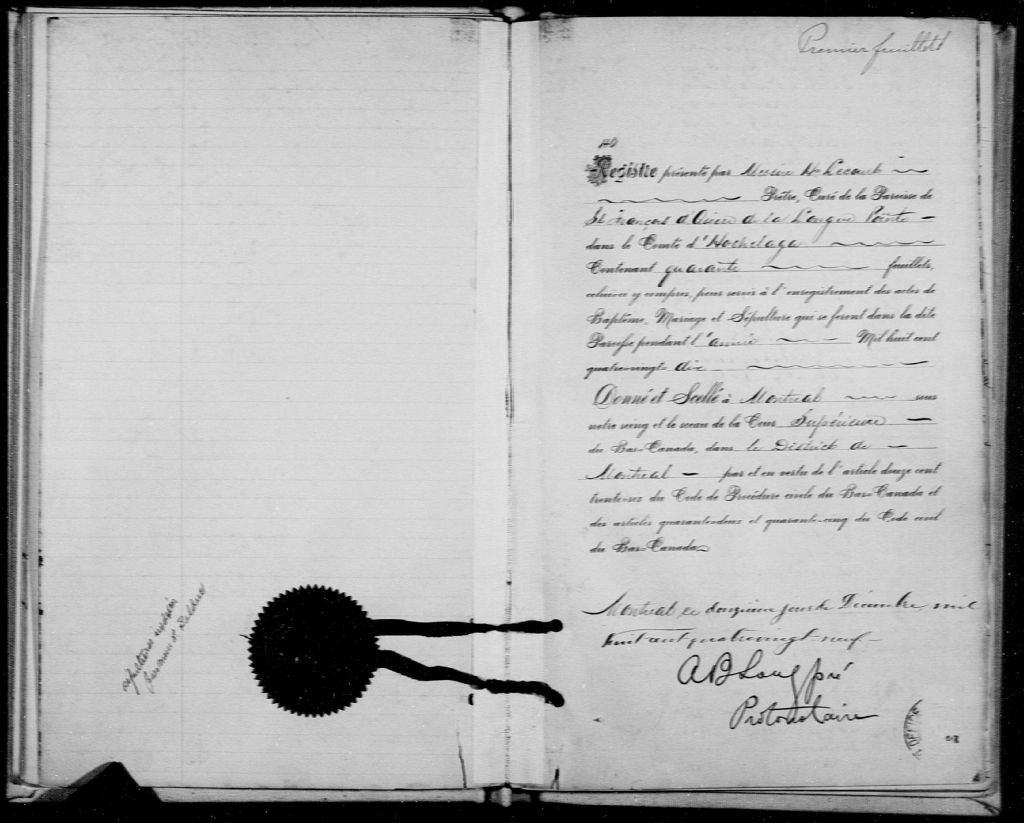 Premier feuillet
Registre présenté par Messire H. Lecourt
Prêtre, Curé de la Paroisse de
St François d'Assise de la Longue Pointe
dans le Comté d'Hochelaga
Contenant quarante feuillets,
celui-ci y compris, pour servir à l'enregistrement des actes de
Baptême, Mariage et Sépulture qui se feront dans la dite
Paroisse pendant l'année Mil huit cent
quatre-vingt dix
Donné et Scellé à Montréal sous
notre seing et le sceau de la Cour Supérieure
du Bas-Canada, dans le District de
Montréal par et en vertu de l'article douze cent
trente-six du Code de Procédure civile du Bas-Canada et
des articles quarante-deux et quarante-cinq du Code civil
du Bas-Canada.
Montréal ce douzième jour de Décembre mil
huit cent quatrevingt-neuf
A B Longpré
Protonotaire